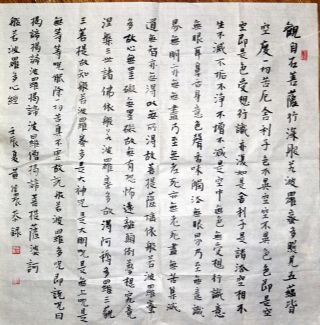 觀自在菩薩行深般若波羅蜜多照見五蘊皆
空度一切苦厄舍利子色不異空空不異色色即是空
空即是色受想行識亦復如是舍利子是諸法空相不
生不滅不垢不淨不增不減是空中無色無受想行識
無眼耳鼻舌身意無色聲香味觸法無眼界乃至無意識
界無無明亦無無明盡乃至無老死亦無老死盡無苦集滅
道無智亦無得以無所得故菩提薩埵依般若波羅蜜
多故心無罣礙無罣礙故無有恐怖遠離顛倒夢想究竟
涅槃三世諸佛依般若波羅蜜多故得阿耨多羅三藐
三菩提故知般若波羅蜜多是大神咒是大明咒是無上咒是
無等等咒能除一切苦真實不虛故說般若波羅蜜多咒即說咒曰
揭諦揭諦波羅揭諦波羅僧揭諦菩提薩婆訶
般若波羅多心經 壬辰夏黃